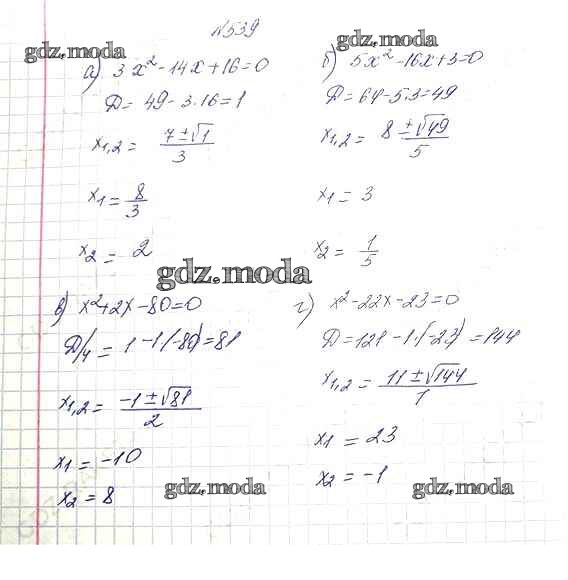 №539
gdz.moda
gdz.moda
а) 3x² - 14x + 16 = 0
D = 49 - 3·16 = 1
x₁,₂ = (7 ± √1)/3
x₁ = 8/3
x₂ = 2
б) 5x² - 16x + 3 = 0
D = 64 - 5·3 = 49
x₁,₂ = (8 ± √49)/5
x₁ = 3
x₂ = 1/5
gdz.moda
в) x² + 2x - 80 = 0
D/4 = 1 - 1·(-80) = 81
x₁,₂ = (-1 ± √81)/2
x₁ = -10
x₂ = 8
г) x² - 22x - 23 = 0
D = 121 - 1·(-23) = 144
x₁,₂ = (11 ± √144)/1
x₁ = 23
x₂ = -1
gdz.moda
gdz.moda